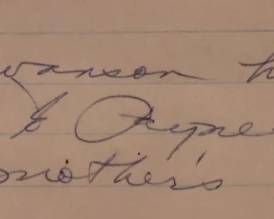 wanson h
& Payne
mother's